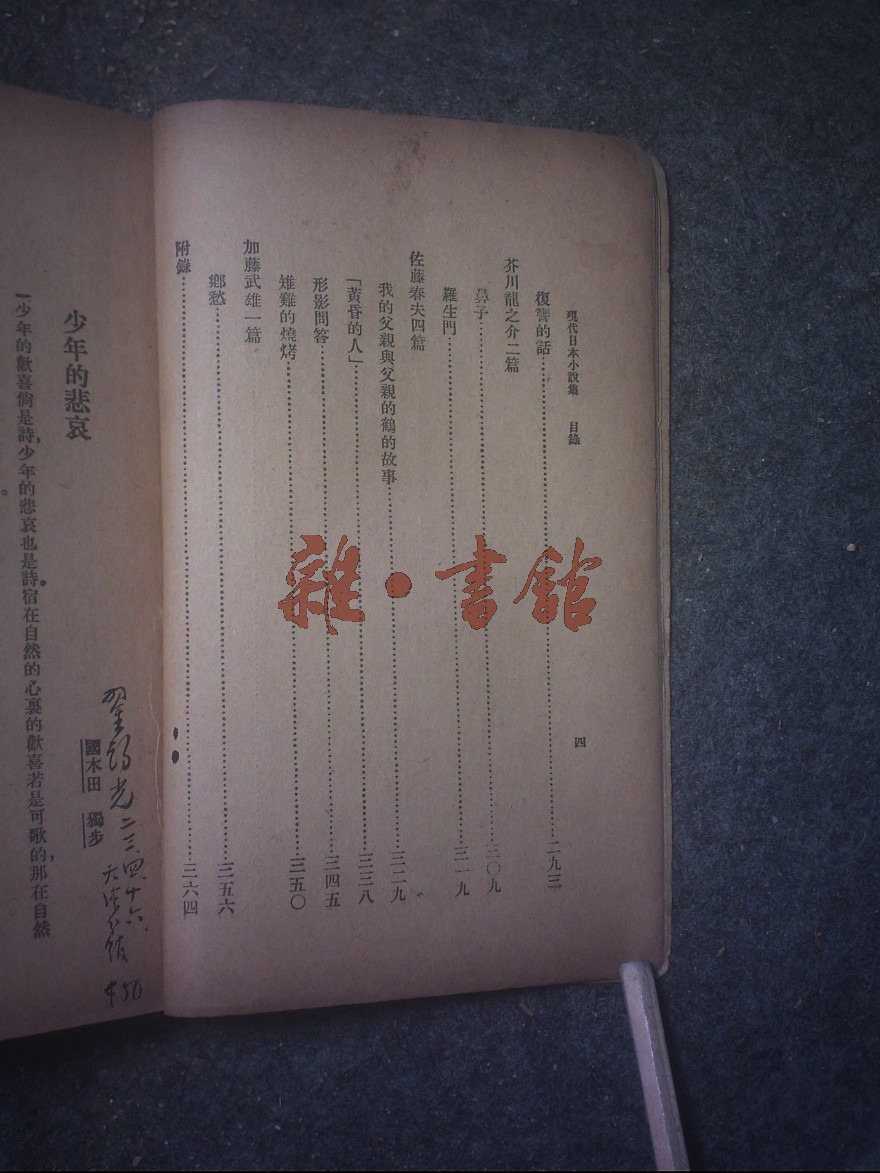 現代日本小說集 目錄 四
復讐的話……二九三
芥川龍之介二篇
鼻子……三〇九
羅生門……三一九
佐藤春夫四篇
我的父親與父親的鶴的故事……三二九
「黃昏的人」……三三八
形影問答……三四五
雉雞的燒烤……三五〇
加藤武雄一篇
鄉愁……三五六
附錄……三六四
雜·書館
少年的悲哀
國木田 獨步
二三,四,十六,
450
「少年的歡喜倘是詩,少年的悲哀也是詩。宿在自然的心裏的歡喜若是可歌的,那在自然